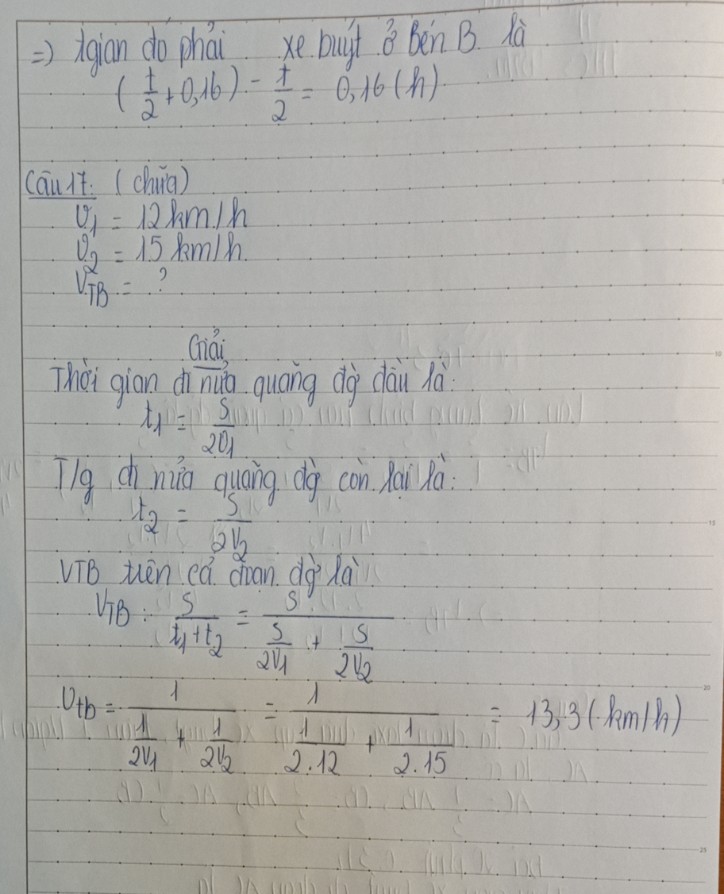 =) tgian đó phải xe buýt ở bến B là
(1/2 + 0,16) - 1/2 = 0,16 (h)
Câu 17: (chữa)
v1 = 12 km/h
v2 = 15 km/h
VTB = ?
Giải
Thời gian đi nửa quãng đg đầu là:
t1 = S/2v1
T/g đi nửa quãng đg còn lại là:
t2 = S/2v2
VTB trên cả đoạn đg là
VTB: S/t1+t2 = S/(S/2v1 + S/2v2)
Vtb = 1/(1/2v1 + 1/2v2) = 1/(1/2.12 + 1/2.15) = 13,3 (km/h)